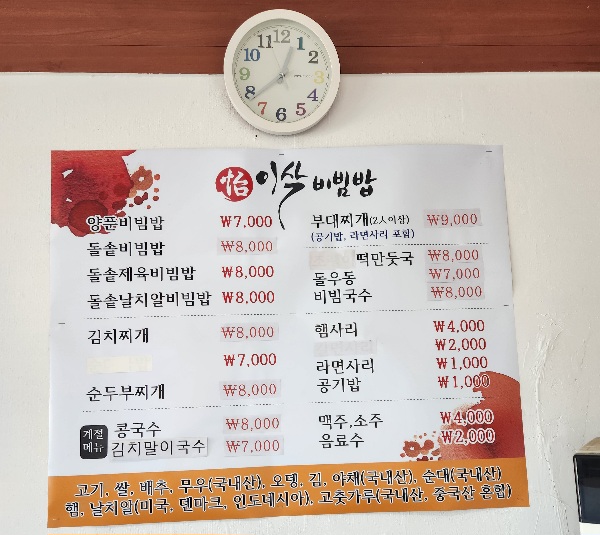 12
1
2
3
4
5
6
7
8
9
10
11
怡 이삭 비빔밥
양푼비빔밥 ₩7,000
돌솥비빔밥 ₩8,000
돌솥제육비빔밥 ₩8,000
돌솥날치알비빔밥 ₩8,000
김치찌개 ₩8,000
₩7,000
순두부찌개 ₩8,000
계절메뉴
콩국수 ₩8,000
김치말이국수 ₩7,000
부대찌개(2人이상) ₩9,000
(공기밥, 라면사리 포함)
떡만둣국 ₩8,000
돌우동 ₩7,000
비빔국수 ₩8,000
햄사리 ₩4,000
₩2,000
라면사리 ₩1,000
공기밥 ₩1,000
맥주,소주 ₩4,000
음료수 ₩2,000
고기, 쌀, 배추, 무우(국내산), 오뎅, 김, 야채(국내산), 순대(국내산)
햄, 날치알(미국, 덴마크, 인도네시아), 고춧가루(국내산, 중국산 혼합)